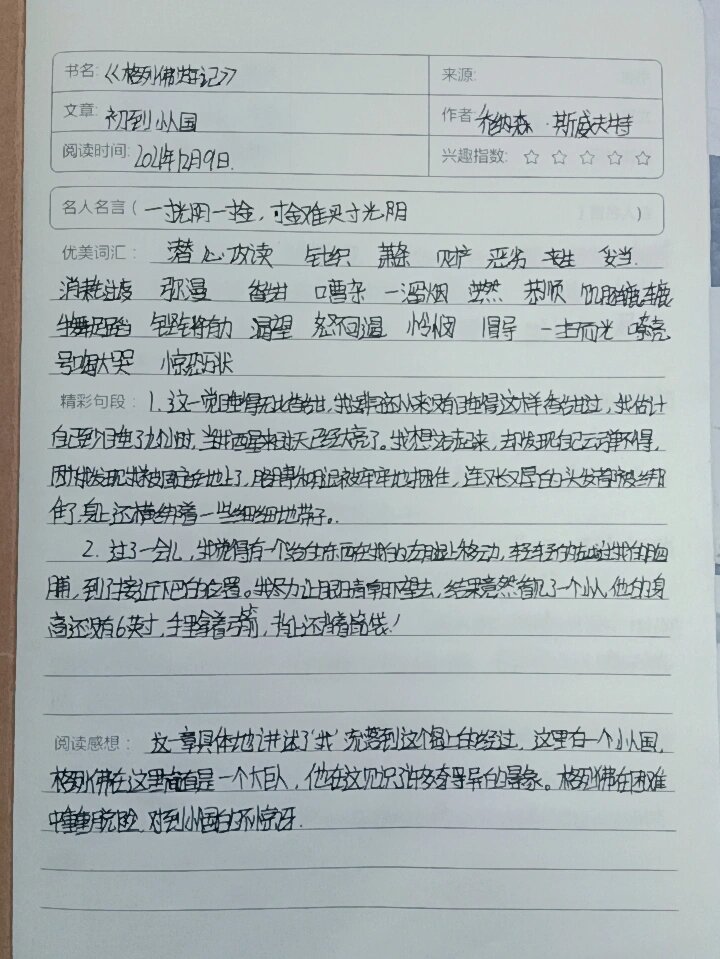 书名:《格列佛游记》 来源:
文章: 初到小人国 作者: 乔纳森·斯威夫特
阅读时间: 2021年12月9日. 兴趣指数: ☆ ☆ ☆ ☆ ☆
名人名言（一寸光阴一寸金，寸金难买寸光阴）
优美词汇: 潜心攻读 针织 萧条 财产 恶劣 丧生 妥当
消耗过度 弥漫 香甜 嘈杂 一溜烟 茫然 恭顺 饥肠辘辘
手舞足蹈 铿锵有力 渴望 怒不可遏 怜悯 倡导 一拥而光 嘹亮
号啕大哭 惊恐万状
精彩句段: 1.这一觉睡得无比香甜，我从来没有睡得这样香甜过，我估计
自己至少睡了九小时，当我醒来时天已经大亮了。我想站起来，却发现自己动弹不得，
因为我发现我被固定在地上了，胳膊和腿被牢牢地捆住，连又长又厚的头发都被绑
住了，身上还横绑着一些细细地带子。
2.过了一会儿，我觉得有一个活的东西在我的左腿上移动，轻轻的越过我的胸
脯，到了接近下巴的位置。我尽力让眼睛朝下望去，结果竟然看见了一个小人，他的身
高还没有6英寸，手里拿着弓箭，背上还背着箭袋！
阅读感想: 这一章具体地讲述了"我"流落到这个岛上的经过，这里有一个小人国，
格列佛在这里是一个大巨人，他在这见识了许多奇异的景象。格列佛在困难